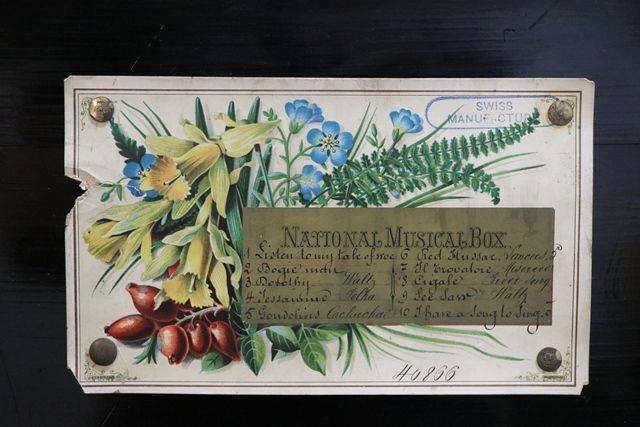 SWISS
MANUFACTU
NATIONAL MUSICAL BOX.
1 Listen to my tale of woe 6 Red Hussar, Lancers
2 Bogie man 7 Il Trovatore Miserere
3 Dorothy Waltz 8 Cigale
4 Jessamine Polka 9 See Saw Waltz
5 Gondoliers Cachucha 10 I have a Song to Sing. O
40866